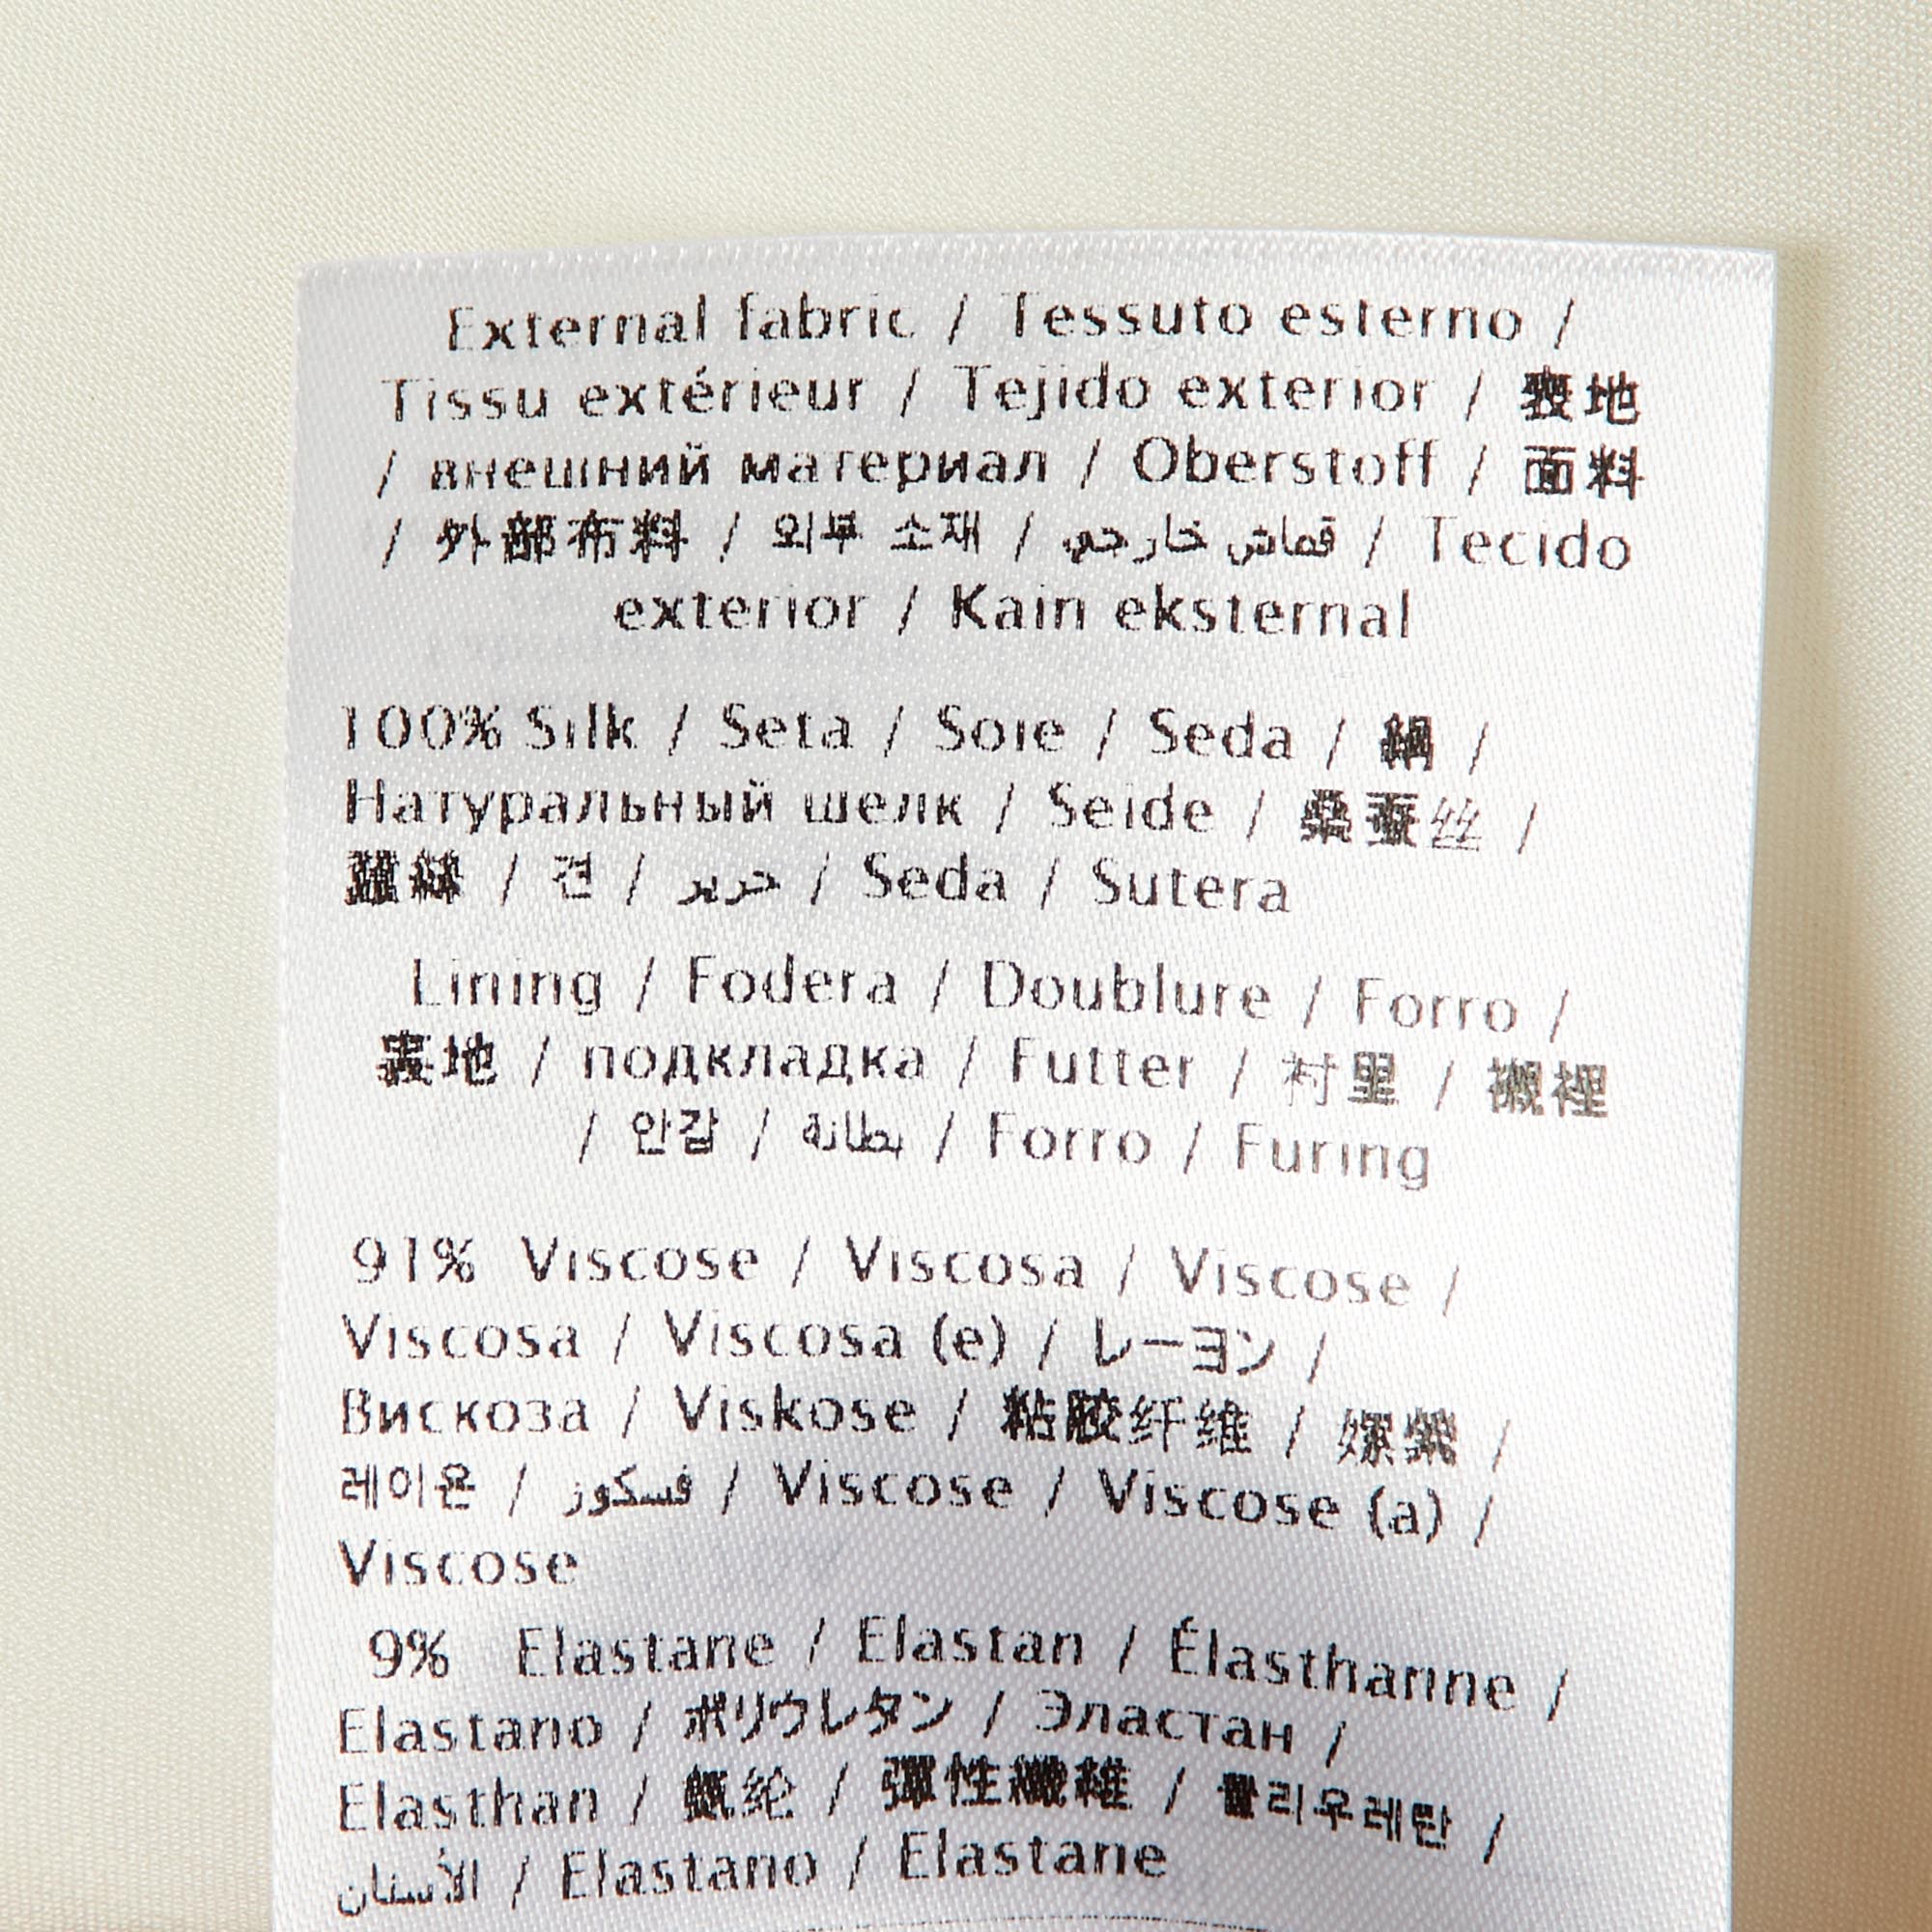 External fabric / Tessuto esterno /
Tissu extérieur / Tejido exterior / 表地
/ внешний материал / Oberstoff / 面料
/ 外部布料 / 외부 소재 / قماش خارجي / Tecido
exterior / Kain eksternal
100% Silk / Seta / Soie / Seda / 絹 /
Натуральный шелк / Seide / 桑蚕丝 /
蠶絲 / 견 / حرير / Seda / Sutera
Lining / Fodera / Doublure / Forro /
裏地 / подкладка / Futter / 衬里 / 襯裡
/ 안감 / بطانة / Forro / Furing
91% Viscose / Viscosa / Viscose /
Viscosa / Viscosa (e) / レーヨン /
Вискоза / Viskose / 粘胶纤维 / 嫘縈 /
레이온 / فسكوز / Viscose / Viscose (a) /
Viscose
9% Elastane / Elastan / Élasthanne /
Elastano / ポリウレタン / Эластан /
Elasthan / 氨纶 / 彈性纖維 / 폴리우레탄 /
/ Elastano / Elastane